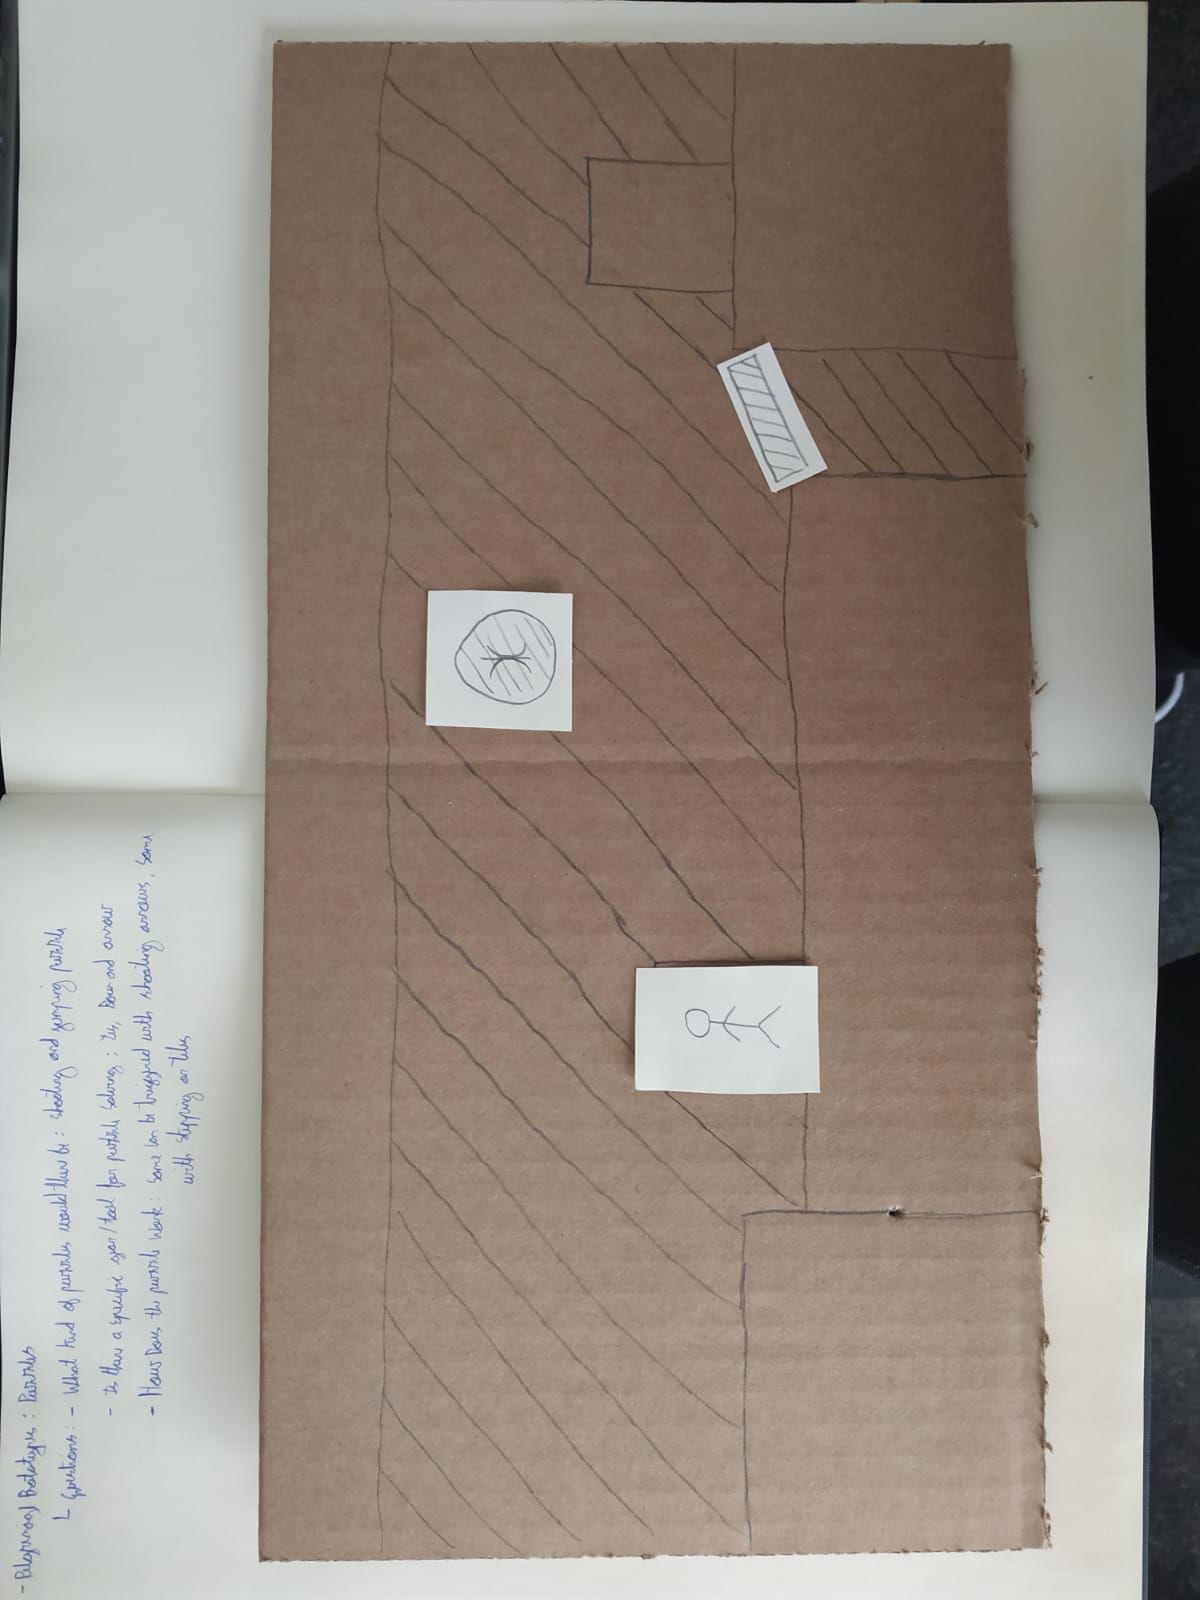 Prototypes: Puzzles
Questions: - What kind of puzzles would there be: shooting and jumping puzzle
- Is there a specific gear/tool for puzzle solving: Yes, Bow and arrow
- How Does the puzzle work: Some can be triggered with shooting arrows, some
with stepping on tiles